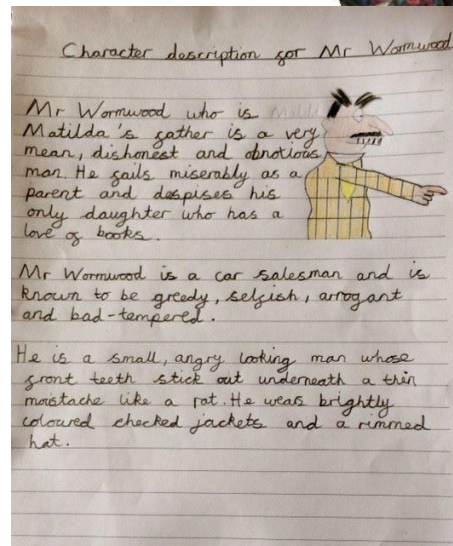 Character description for Mr Wormwood
Mr Wormwood who is
Matilda's father is a very
mean, dishonest and obnotious
man. He fails miserably as a
parent and despises his
only daughter who has a
love of books.
Mr Wormwood is a car salesman and is
known to be greedy, selfish, arrogant
and bad-tempered.
He is a small, angry looking man whose
front teeth stick out underneath a thin
moustache like a rat. He wears brightly
coloured checked jackets and a rimmed
hat.